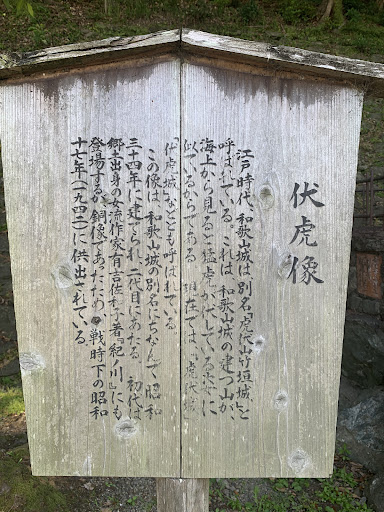 伏虎像
江戸時代、和歌山城は別名「虎伏山竹垣城」と
呼ばれている。これは、和歌山城の建つ山が、
海上から見ると猛虎が伏している姿に
似ているからである。現在では、「虎伏城」
「伏虎城」などとも呼ばれている。
この像は、和歌山城の別名にちなんで昭和
三十四年に建てられ、二代目にあたる。初代は、
郷土出身の女流作家有吉佐和子著『紀ノ川』にも
登場するが、銅像であったため、戦時下の昭和
十七年（一九四二）に供出されている。